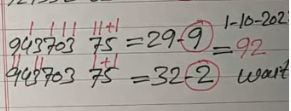 1-10-202
943703 75 = 29-9 = 92
943703 75 = 32-2 wait